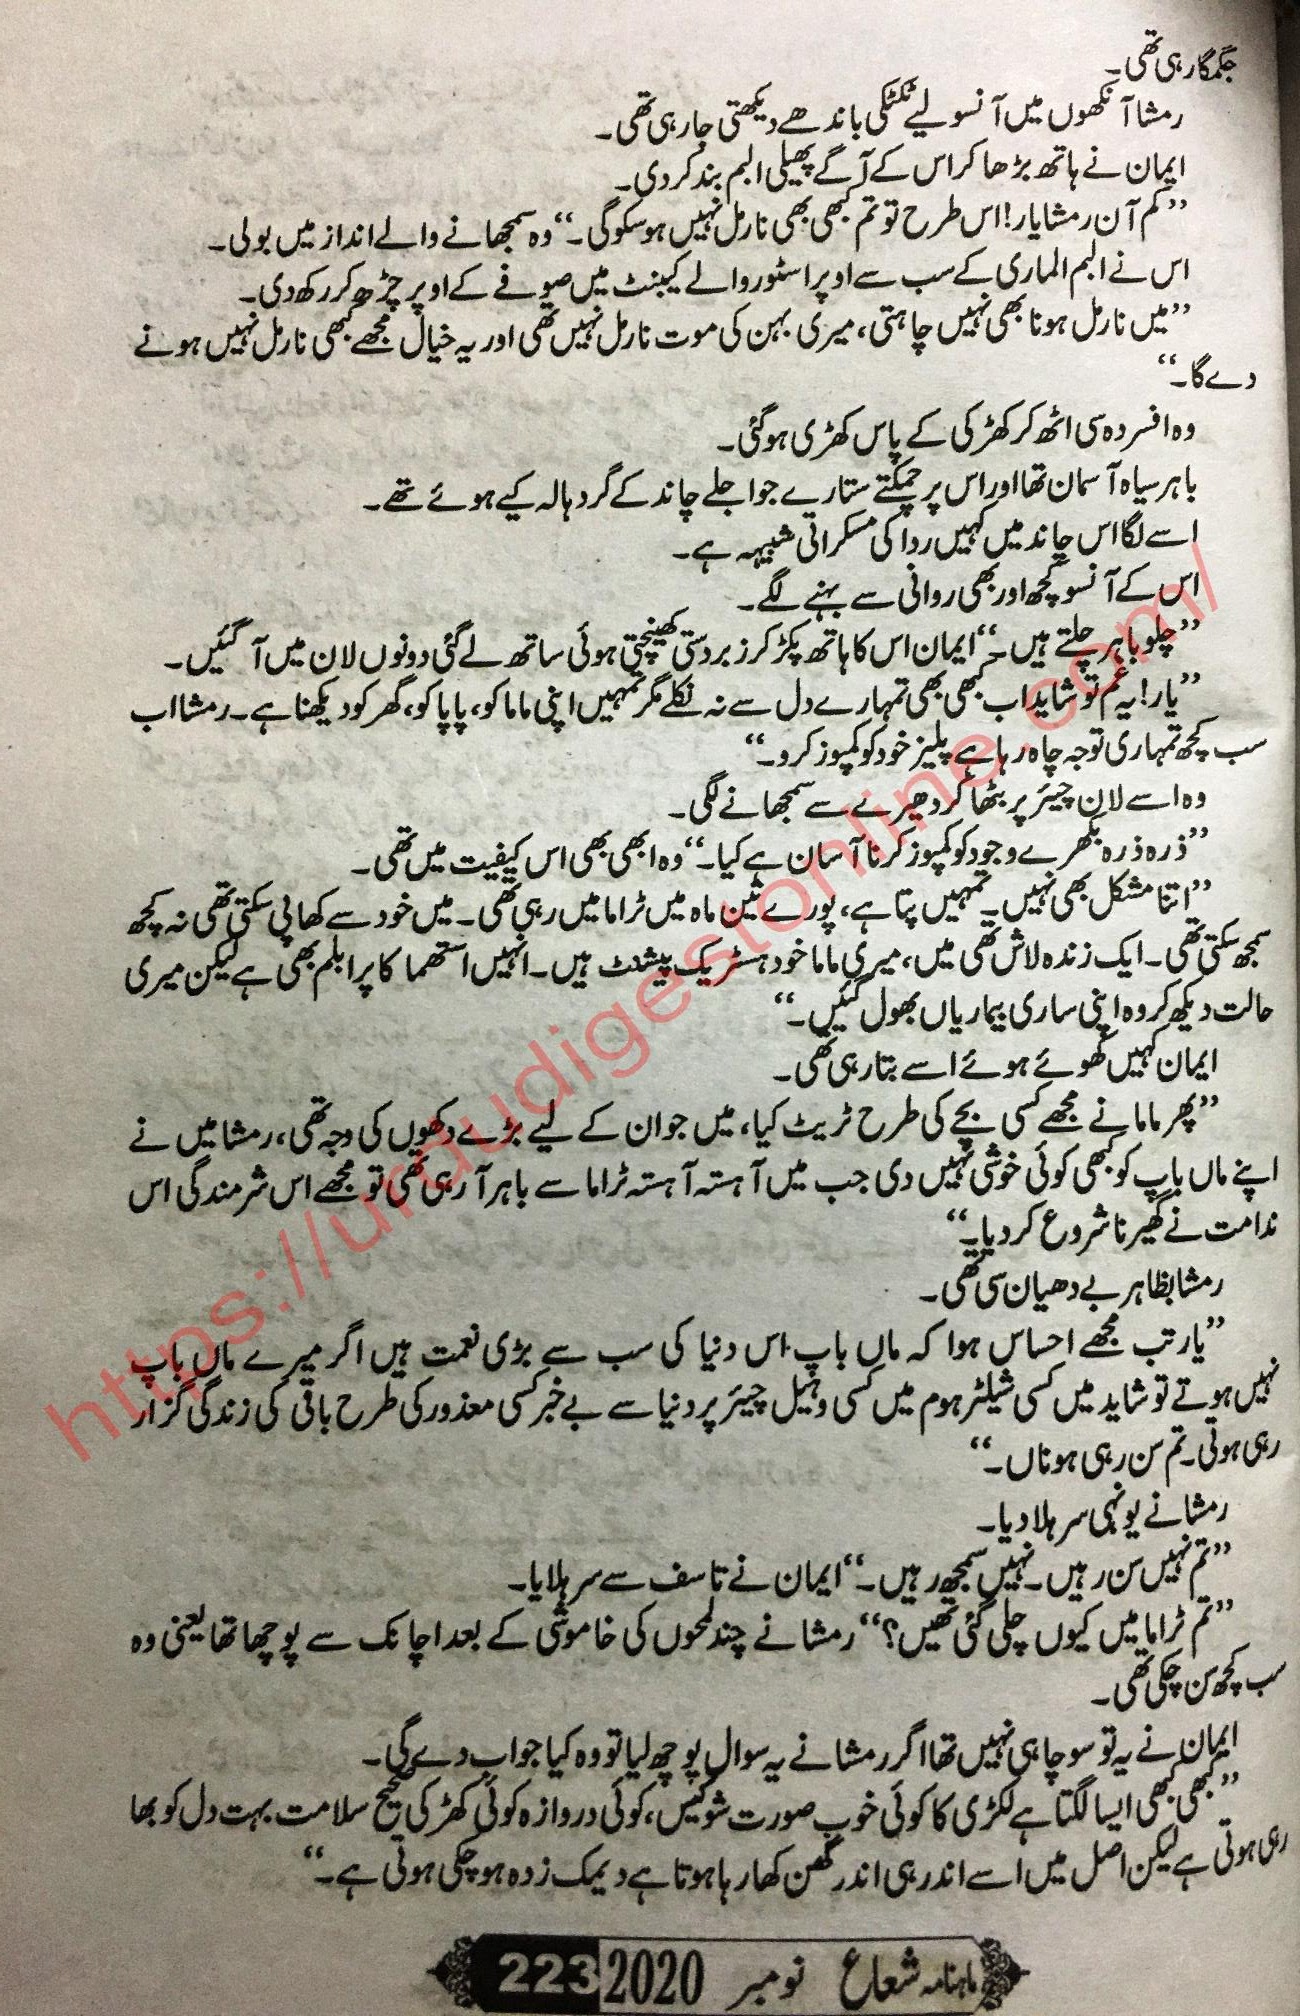 جگمگا رہی تھی۔
رمشا آنکھوں میں آنسو لیے ٹکٹکی باندھے دیکھتی جا رہی تھی۔
ایمان نے ہاتھ بڑھا کر اس کے آگے پھیلی البم بند کر دی۔
”کم آن رمشا یار! اس طرح تو تم کبھی بھی نارمل نہیں ہو سکو گی۔“ وہ سمجھانے والے انداز میں بولی۔
اس نے البم الماری کے سب سے اوپر اسٹور والے کیبنٹ میں صوفے کے اوپر چڑھ کر رکھ دی۔
”میں نارمل ہونا بھی نہیں چاہتی، میری بہن کی موت نارمل نہیں تھی اور یہ خیال مجھے کبھی نارمل نہیں ہونے
دے گا۔“
وہ افسردہ سی اٹھ کر کھڑکی کے پاس کھڑی ہو گئی۔
باہر سیاہ آسمان تھا اور اس پر چمکتے ستارے جو اجلے چاند کے گرد ہالہ کیے ہوئے تھے۔
اسے لگا اس چاند میں کہیں ردا کی مسکراتی شبیہہ ہے۔
اس کے آنسو کچھ اور بھی روانی سے بہنے لگے۔
”چلو باہر چلتے ہیں۔“ ایمان اس کا ہاتھ پکڑ کر زبردستی کھینچتی ہوئی ساتھ لے گئی دونوں لان میں آ گئیں۔
”یار! یہ غم تو شاید اب کبھی بھی تمہارے دل سے نہ نکلے مگر تمہیں اپنی ماما کو، پاپا کو، گھر کو دیکھنا ہے۔ رمشا اب
سب کچھ تمہاری توجہ چاہ رہا ہے پلیز خود کو کمپوز کرو۔“
وہ اسے لان چیئر پر بٹھا کر دھیرے سے سمجھانے لگی۔
”ذرہ ذرہ بکھرے وجود کو کمپوز کرنا آسان ہے کیا۔“ وہ ابھی بھی اس کیفیت میں تھی۔
”اتنا مشکل بھی نہیں۔ تمہیں پتا ہے، پورے تین ماہ میں ٹراما میں رہی تھی۔ میں خود سے کھا پی سکتی تھی نہ کچھ
سمجھ سکتی تھی۔ ایک زندہ لاش تھی میں، میری ماما خود ہسٹریک پیشنٹ ہیں۔ انہیں استھما کا پرابلم بھی ہے لیکن میری
حالت دیکھ کر وہ اپنی ساری بیماریاں بھول گئیں۔“
ایمان کہیں کھوئے ہوئے اسے بتا رہی تھی۔
”پھر ماما نے مجھے کسی بچے کی طرح ٹریٹ کیا، میں جو ان کے لیے بڑے دکھوں کی وجہ تھی، رمشا میں نے
اپنے ماں باپ کو کبھی کوئی خوشی نہیں دی جب میں آہستہ آہستہ ٹراما سے باہر آ رہی تھی تو مجھے اس شرمندگی اس
ندامت نے گھیرنا شروع کر دیا۔“
رمشا بظاہر بے دھیان سی تھی۔
”یار تب مجھے احساس ہوا کہ ماں باپ اس دنیا کی سب سے بڑی نعمت ہیں اگر میرے ماں باپ
نہیں ہوتے تو شاید میں کسی شیلٹر ہوم میں کسی وہیل چیئر پر دنیا سے بے خبر کسی معذور کی طرح باقی کی زندگی گزار
رہی ہوتی۔ تم سن رہی ہو ناں۔“
رمشا نے یونہی سر ہلا دیا۔
”تم نہیں سن رہیں۔ نہیں سمجھ رہیں۔“ ایمان نے تاسف سے سر ہلایا۔
”تم ٹراما میں کیوں چلی گئی تھیں؟“ رمشا نے چند لمحوں کی خاموشی کے بعد اچانک سے پوچھا تھا یعنی وہ
سب کچھ سن چکی تھی۔
ایمان نے یہ تو سوچا ہی نہیں تھا اگر رمشا نے یہ سوال پوچھ لیا تو وہ کیا جواب دے گی۔
”کبھی کبھی ایسا لگتا ہے لکڑی کا کوئی خوب صورت شوکیس، کوئی دروازہ کوئی کھڑکی صحیح سلامت بہت دل کو بھا
رہی ہوتی ہے لیکن اصل میں اسے اندر ہی اندر گھن کھا رہا ہوتا ہے دیمک زدہ ہو چکی ہوتی ہے۔“
ماہنامہ شعاع نومبر 2020 223
https://urdudigestonline.com/